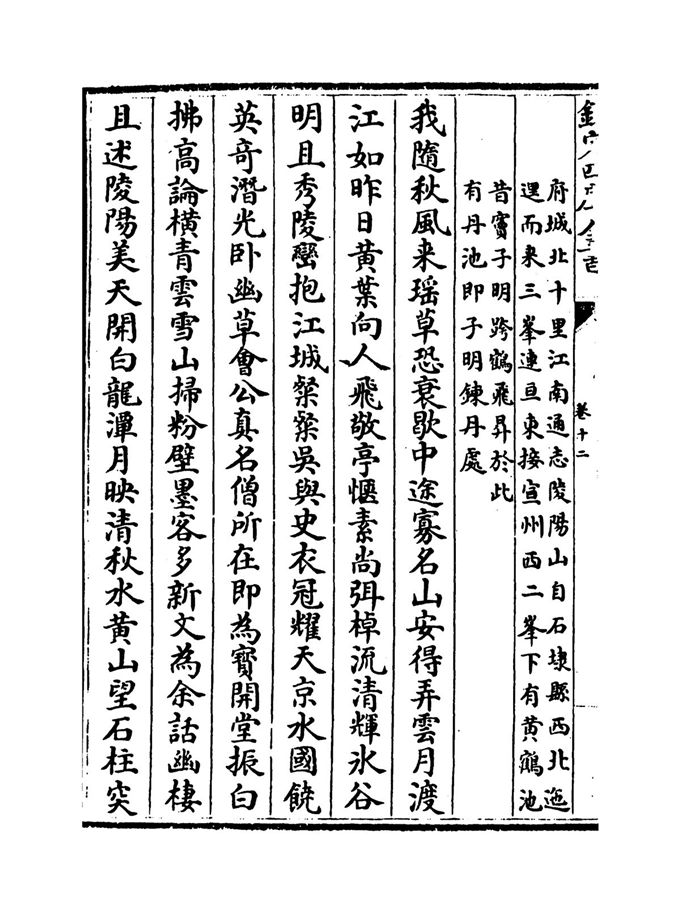 卷十二
府城北十里江南通志陵陽山自石埭縣西北迤
邐而来三峯連亘東接宣州西二峯下有黄鶴池
昔竇子明跨鶴飛昇於此
有丹池即子明鍊丹處
我隨秋風来瑶草恐衰歇中途寡名山安得弄雲月渡
江如昨日黄葉向人飛敬亭愜素尚弭棹流清輝氷谷
明且秀陵巒抱江城粲粲吳與史衣冠耀天京水國饒
英奇潛光卧幽草會公真名僧所在即為寳開堂振白
拂高論横青雲雪山掃粉壁墨客多新文為余話幽棲
且述陵陽美天開白龍潭月映清秋水黄山望石柱突